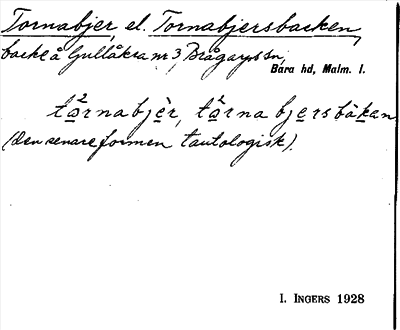 Tornabjer, el. Tornabjersbacken,
backe å Gullåkra nr 3, Brågarps sn,
Bara hd, Malm. l.
tånabjèr, tårnabjersbákan
(den senare formen tautologisk).
I. INGERS 1928